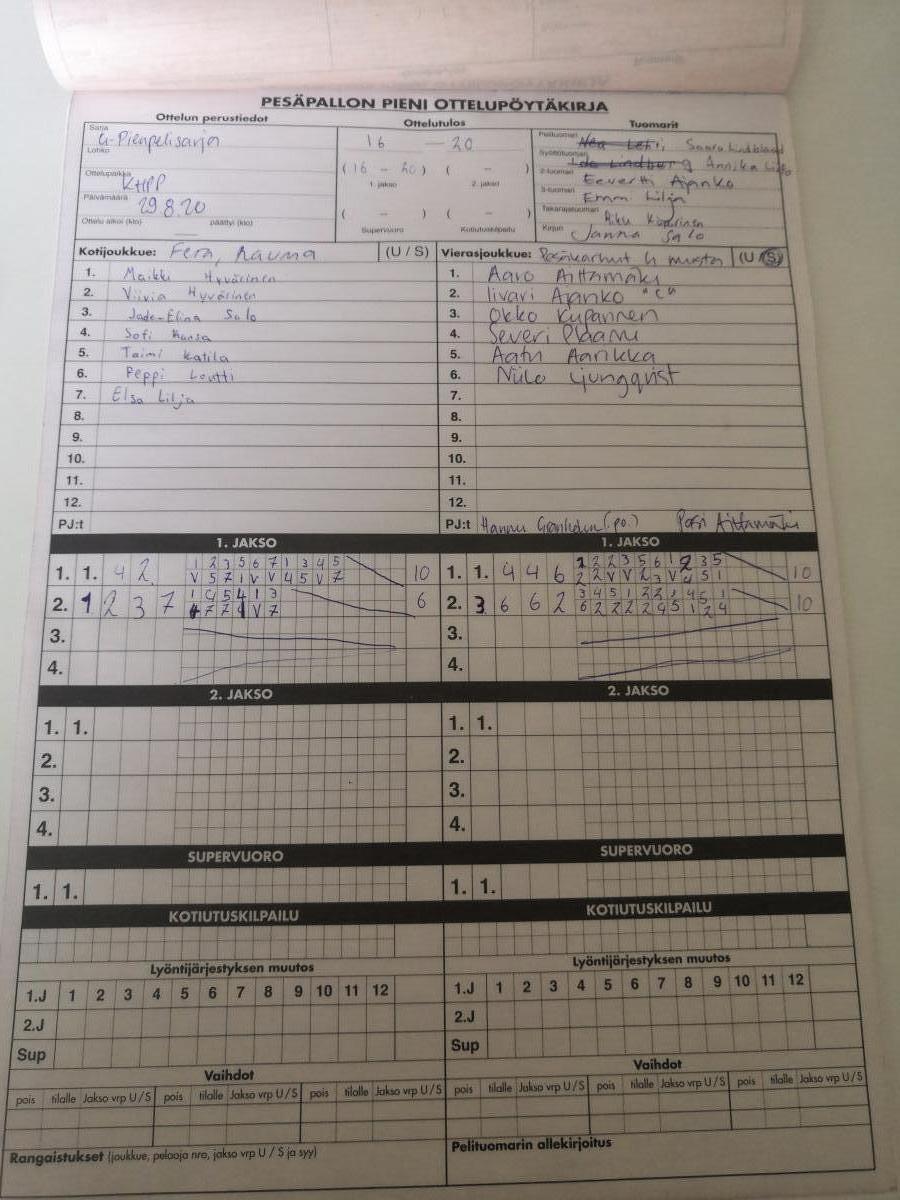 PESÄPALLON PIENI OTTELUPÖYTÄKIRJA
Ottelun perustiedot Ottelutulos Tuomarit
Sarja G-Pienpelisarja
Lohko
Ottelupaikka KHPP
Päivämäärä 29.8.20
Ottelu alkoi (klo) päättyi (klo)
16 — 20
(16 - 20) ( - )
1. jakso 2. jakso
( - ) ( - )
Supervuoro Kotiutuskilpailu
Pelituomari Nea Lehti, Saara Lindblad
Syöttötuomari Ida Lindberg Annika
2-tuomari Eevertti Ajanko
3-tuomari Emmi Lilja
Takarajatuomari Riku
Kirjuri Janna Salo
Kotijoukkue: Fera, Rauma (U / S)
1. Maikki Hyvärinen
2. Viivia Hyvärinen
3. Jade-Elina Salo
4. Sofi Hansa
5. Taimi Katila
6. Peppi Loutti
7. Elsa Lilja
8.
9.
10.
11.
12.
PJ:t
Vierasjoukkue: Pesäkarhut G musta (U / S)
1. Aaro Aittamäki
2. Iivari Ajanko "C"
3. Okko Kupannen
4. Severi
5. Aatu Aarikka
6. Niilo Ljungqvist
7.
8.
9.
10.
11.
12.
PJ:t Hannu (po.) Pasi Aittamäki
1. JAKSO 1. JAKSO
1. 1. 4 2 1 2 3 5 6 7 1 3 4 5 10
V 5 7 1 V V 4 5 V 7
2. 1 2 3 7 1 4 5 4 1 3 6
7 7 V 7
3.
4.
1. 1. 4 4 6 2 2 2 3 5 6 1 2 3 5 10
2 2 V V 2 3 V 4 5 1
2. 3 6 6 2 3 4 5 1 2 2 1 4 5 1 10
6 2 2 2 2 4 5 1 2 4
3.
4.
2. JAKSO 2. JAKSO
1. 1. 1. 1.
2. 2.
3. 3.
4. 4.
SUPERVUORO SUPERVUORO
1. 1. 1. 1.
KOTIUTUSKILPAILU KOTIUTUSKILPAILU
Lyöntijärjestyksen muutos Lyöntijärjestyksen muutos
1.J 1 2 3 4 5 6 7 8 9 10 11 12 1.J 1 2 3 4 5 6 7 8 9 10 11 12
2.J 2.J
Sup Sup
Vaihdot Vaihdot
pois tilalle Jakso vrp U / S pois tilalle Jakso vrp U / S pois tilalle Jakso vrp U / S pois tilalle Jakso vrp U / S pois tilalle Jakso vrp U / S pois tilalle Jakso vrp U / S
Rangaistukset (joukkue, pelaaja nro, jakso vrp U / S ja syy) Pelituomarin allekirjoitus